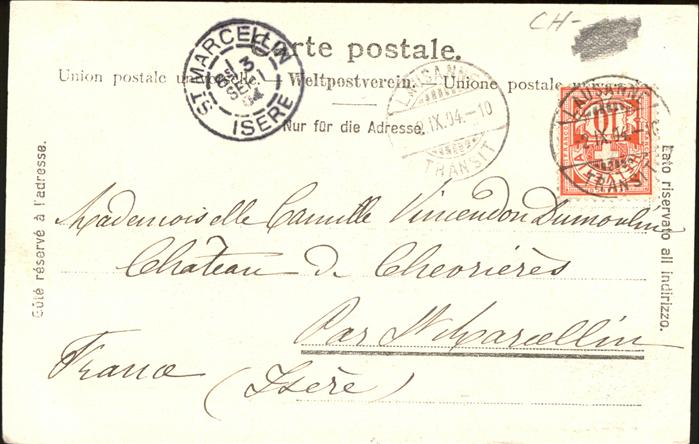 CH-
Carte postale.
Union postale universelle. Weltpostverein. Unione postale
Nur für die Adresse.
ST MARCELLIN
13
ISERE
LAUSANNE
2.IX.04.-10
TRANSIT
LAUSANNE
10
2.IX.04.-10
TRANSIT
Côté réservé à l'adresse.
Lato riservato all indirizzo.
Mademoiselle Camille Vincendon Dumoulin
Château de Chevrières
Par St Marcellin
France (Isère)